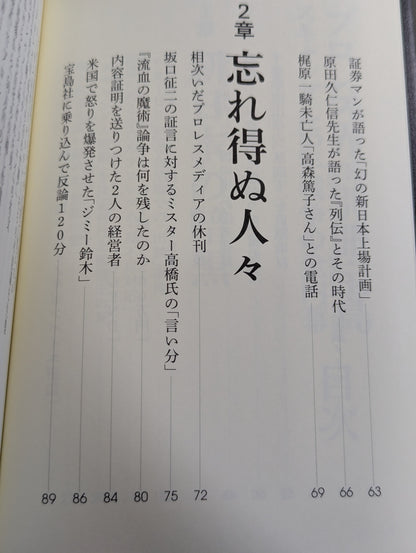 証券マンが語った「幻の新日本上場計画」 63
原田久仁信先生が語った『列伝』とその時代 66
梶原一騎未亡人「高森篤子さん」との電話 69
2章 忘れ得ぬ人々
相次いだプロレスメディアの休刊 72
坂口征二の証言に対するミスター高橋氏の「言い分」 75
『流血の魔術』論争は何を残したのか 80
内容証明を送りつけた2人の経営者 84
米国で怒りを爆発させた「ジミー鈴木」 86
宝島社に乗り込んで反論120分 89